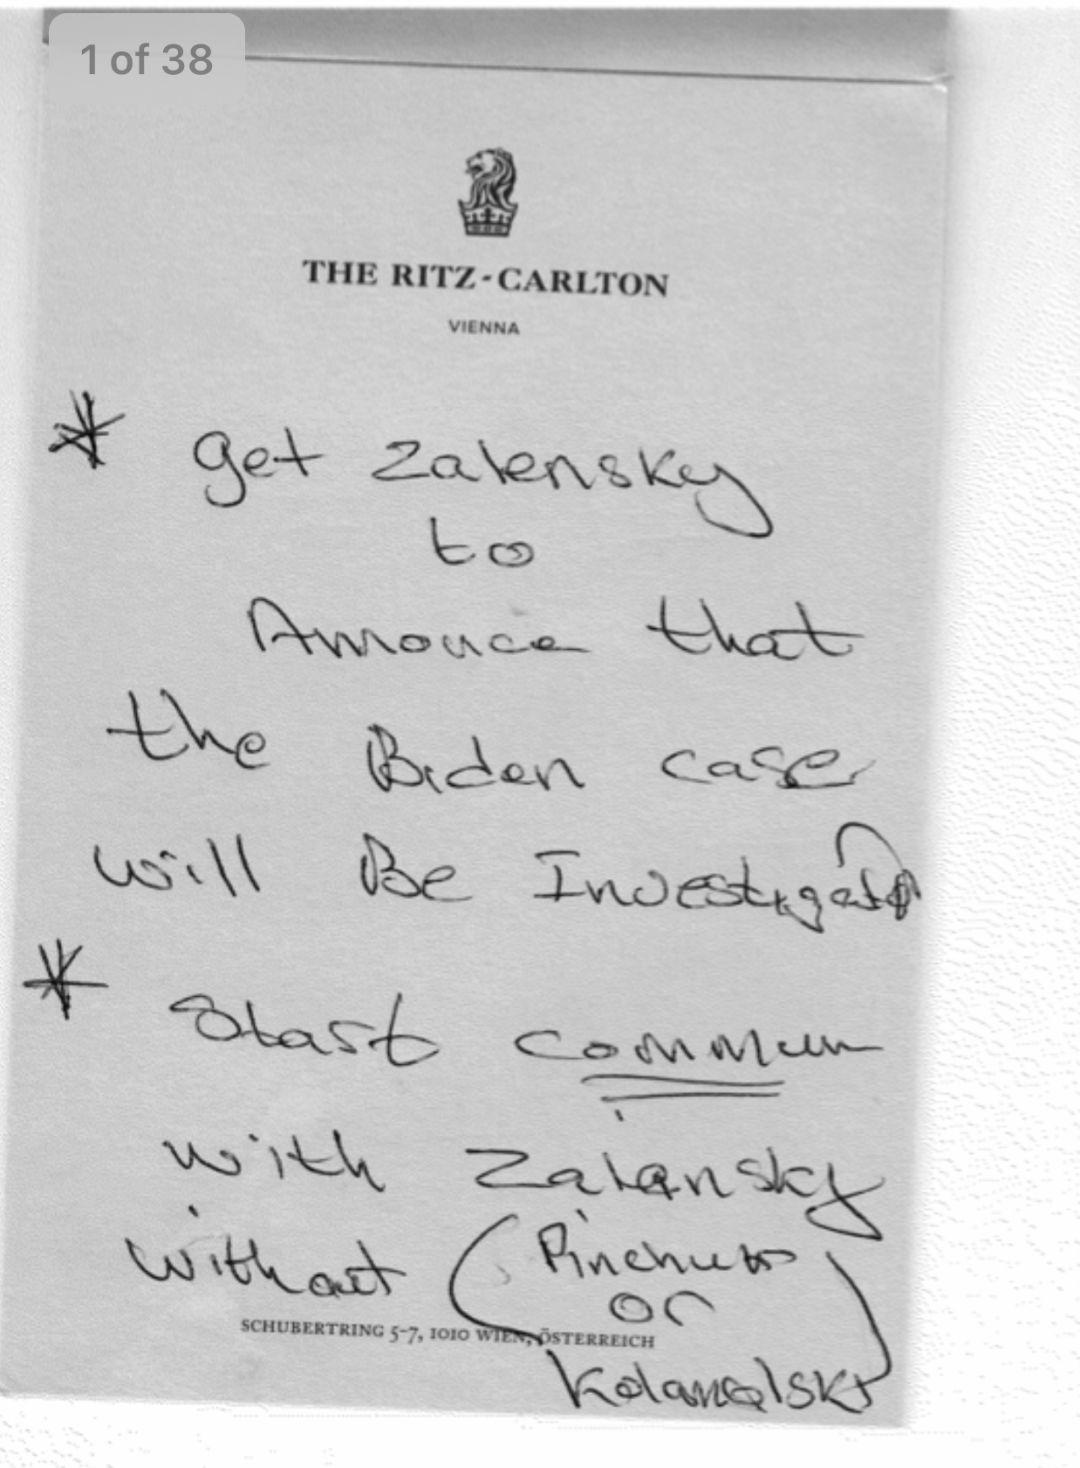 1 of 38
THE RITZ-CARLTON
VIENNA
* get Zalensky
to
Annouce that
the Biden case
will Be Investigated
* start commun
with Zalensky
without (Pinchuk
or
SCHUBERTRING 5-7, 1010 WIEN, ÖSTERREICH
Kolamolsky)